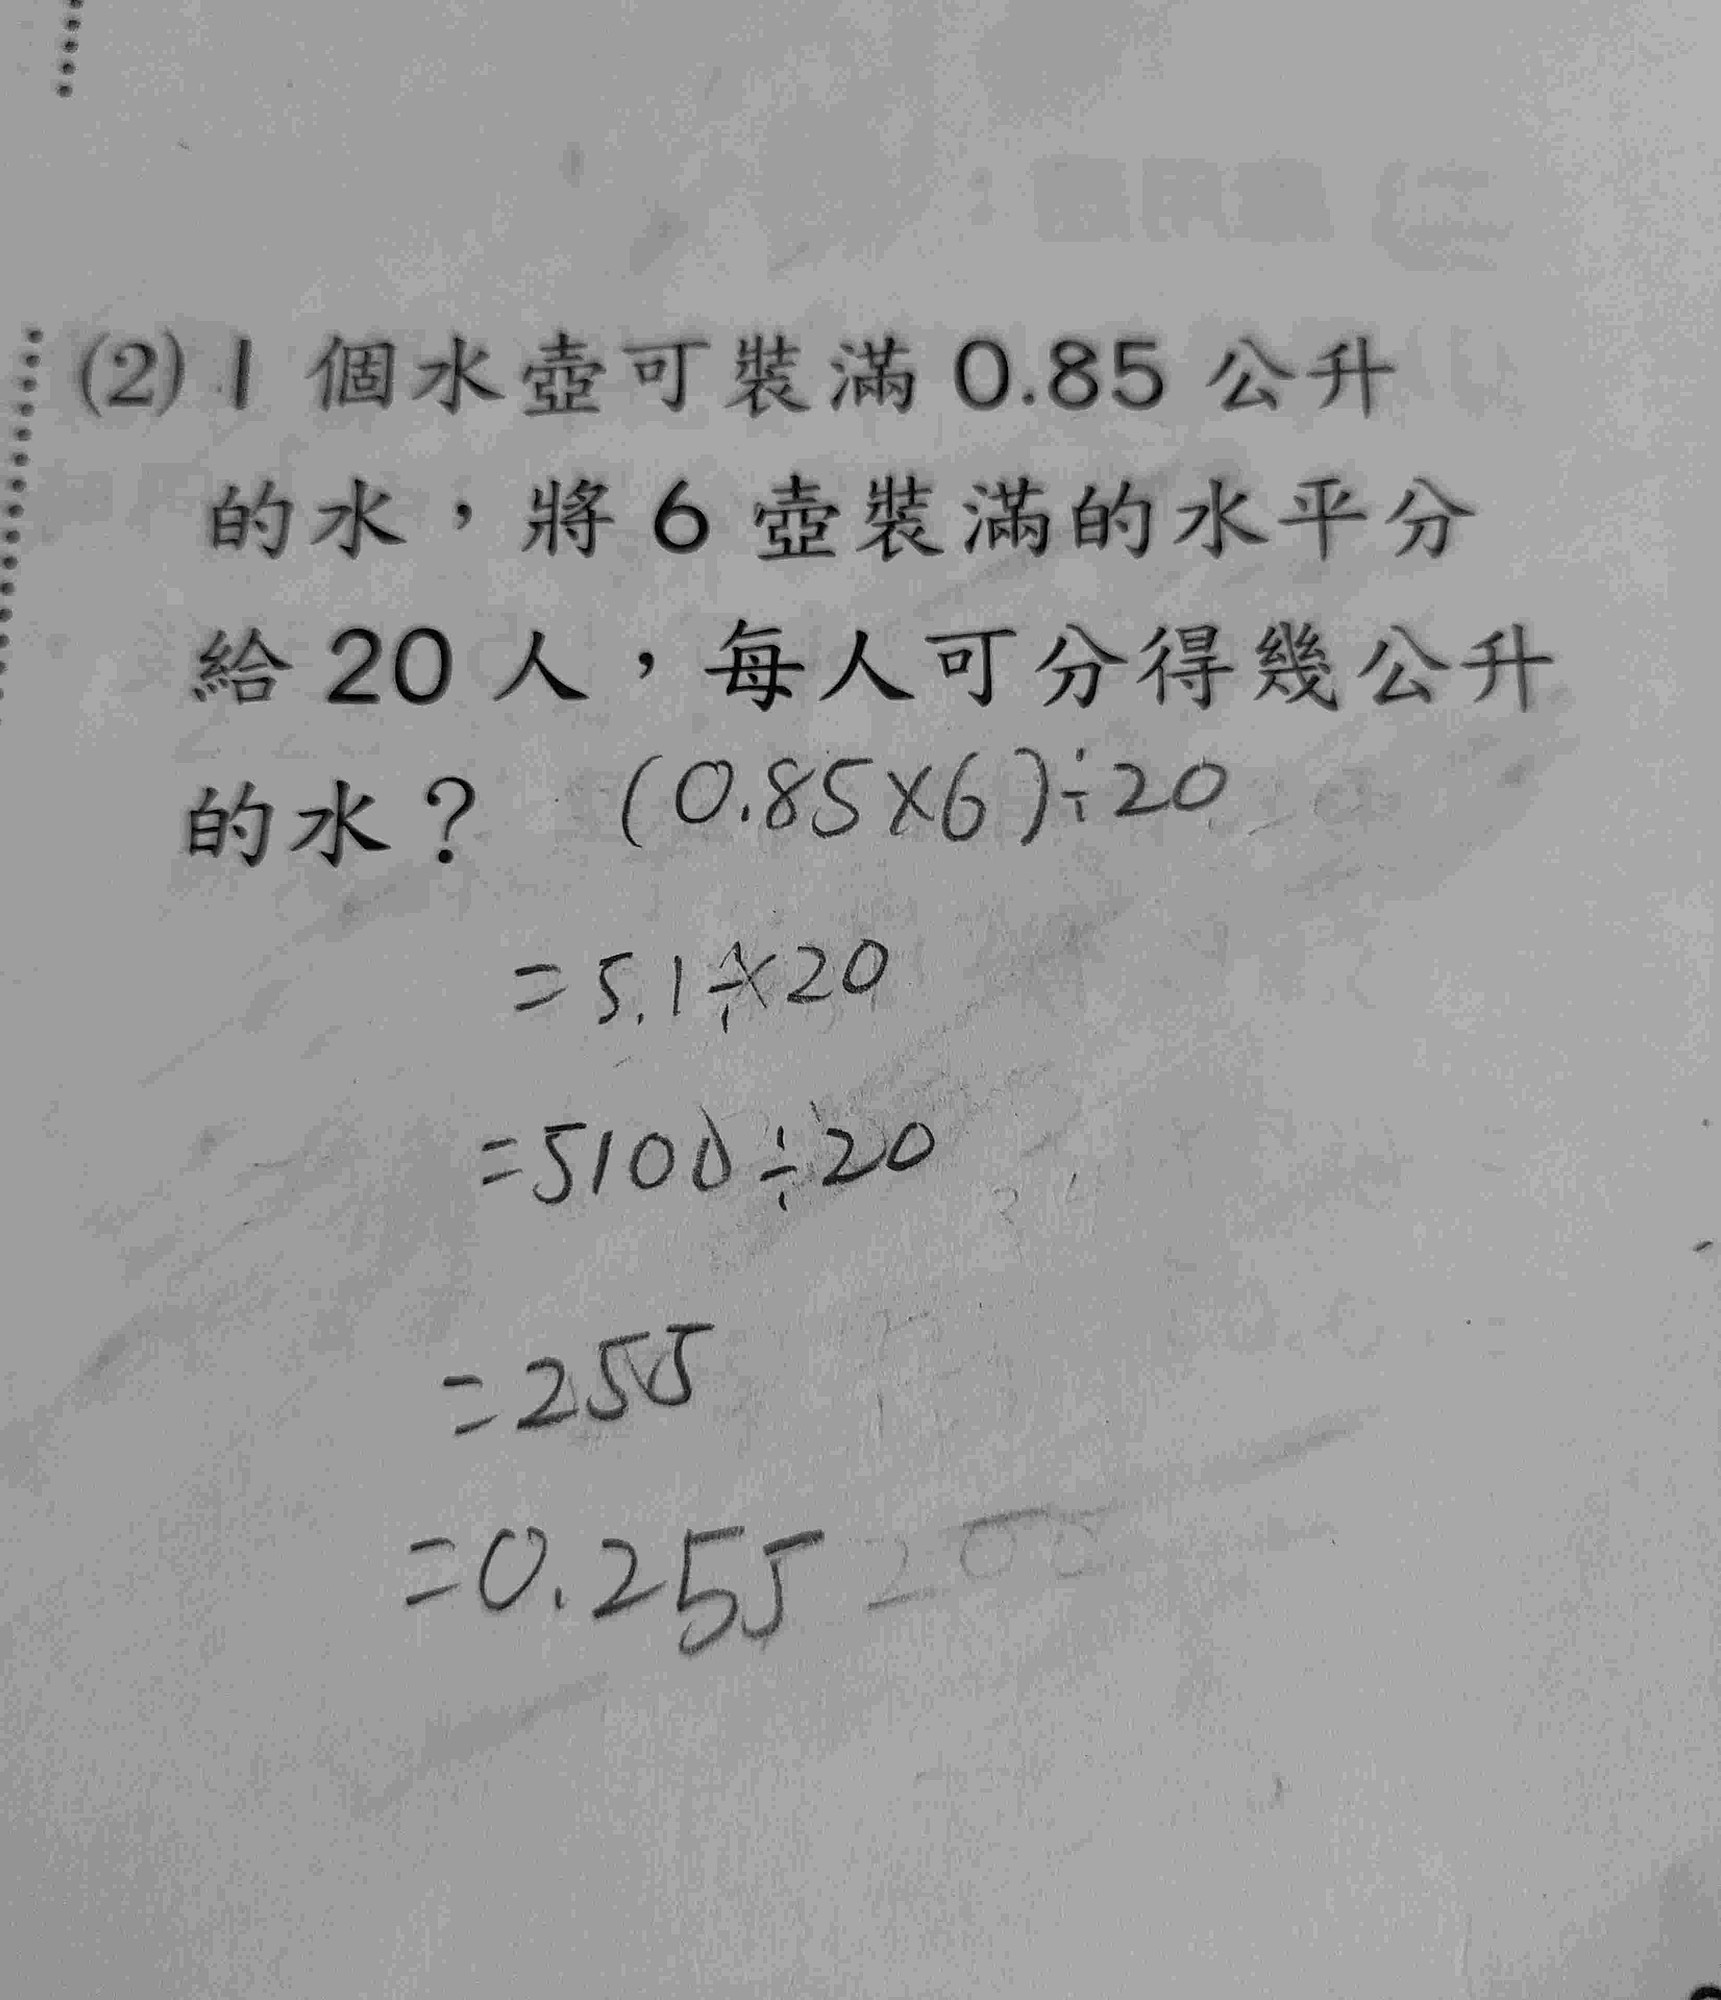 (2) 1 個水壺可裝滿 0.85 公升
的水，將 6 壺裝滿的水平分
給 20 人，每人可分得幾公升
的水？ (0.85×6)÷20
=5.1÷20
=5100÷20
=255
=0.255